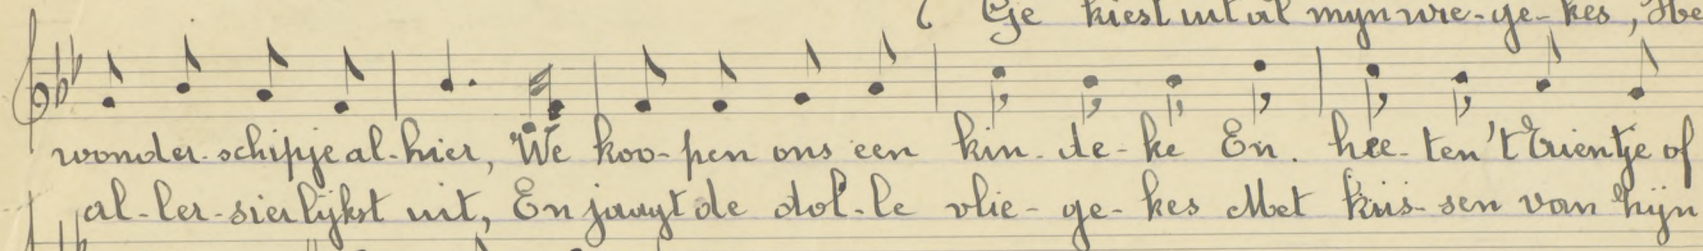 Ge kiest uit al mijn wie-ge-kes,
wonder-schipje al-hier, We koo-pen ons een kin-de-ke En. hee-ten 't Trientje of
al-ler-sierlijkst uit, En jaagt de dol-le vlie-ge-kes Met kus-sen van hijn